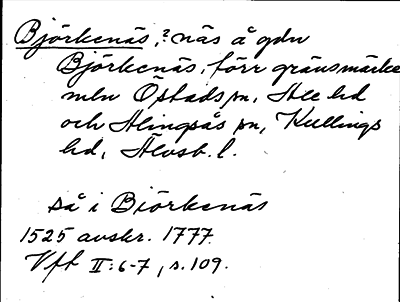 Björkenäs,? näs å gdn
Björkenäs, förr gränsmärke
mln Östads sn, Ale hd
och Alingsås sn, Kullings
hd, Älvsb. l.
så i Biörkenäs
1525 avskr. 1777.
Vft II: 6-7, s. 109.